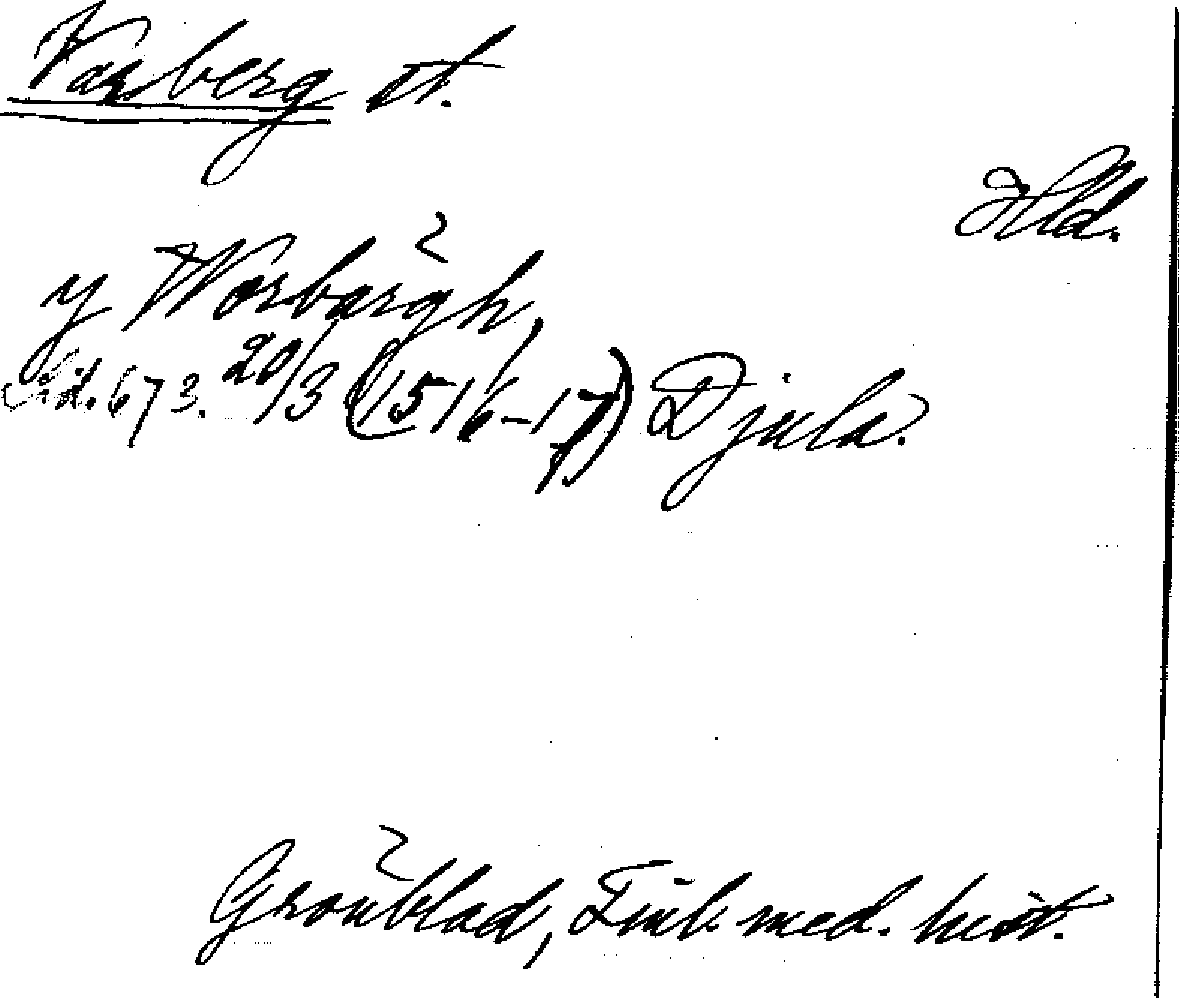 Varberg st.
Hld.
y Warbärgh,
Sid. 673. 20/3 (1516-17) Djula.
Grönblad, Finl. med. hist.